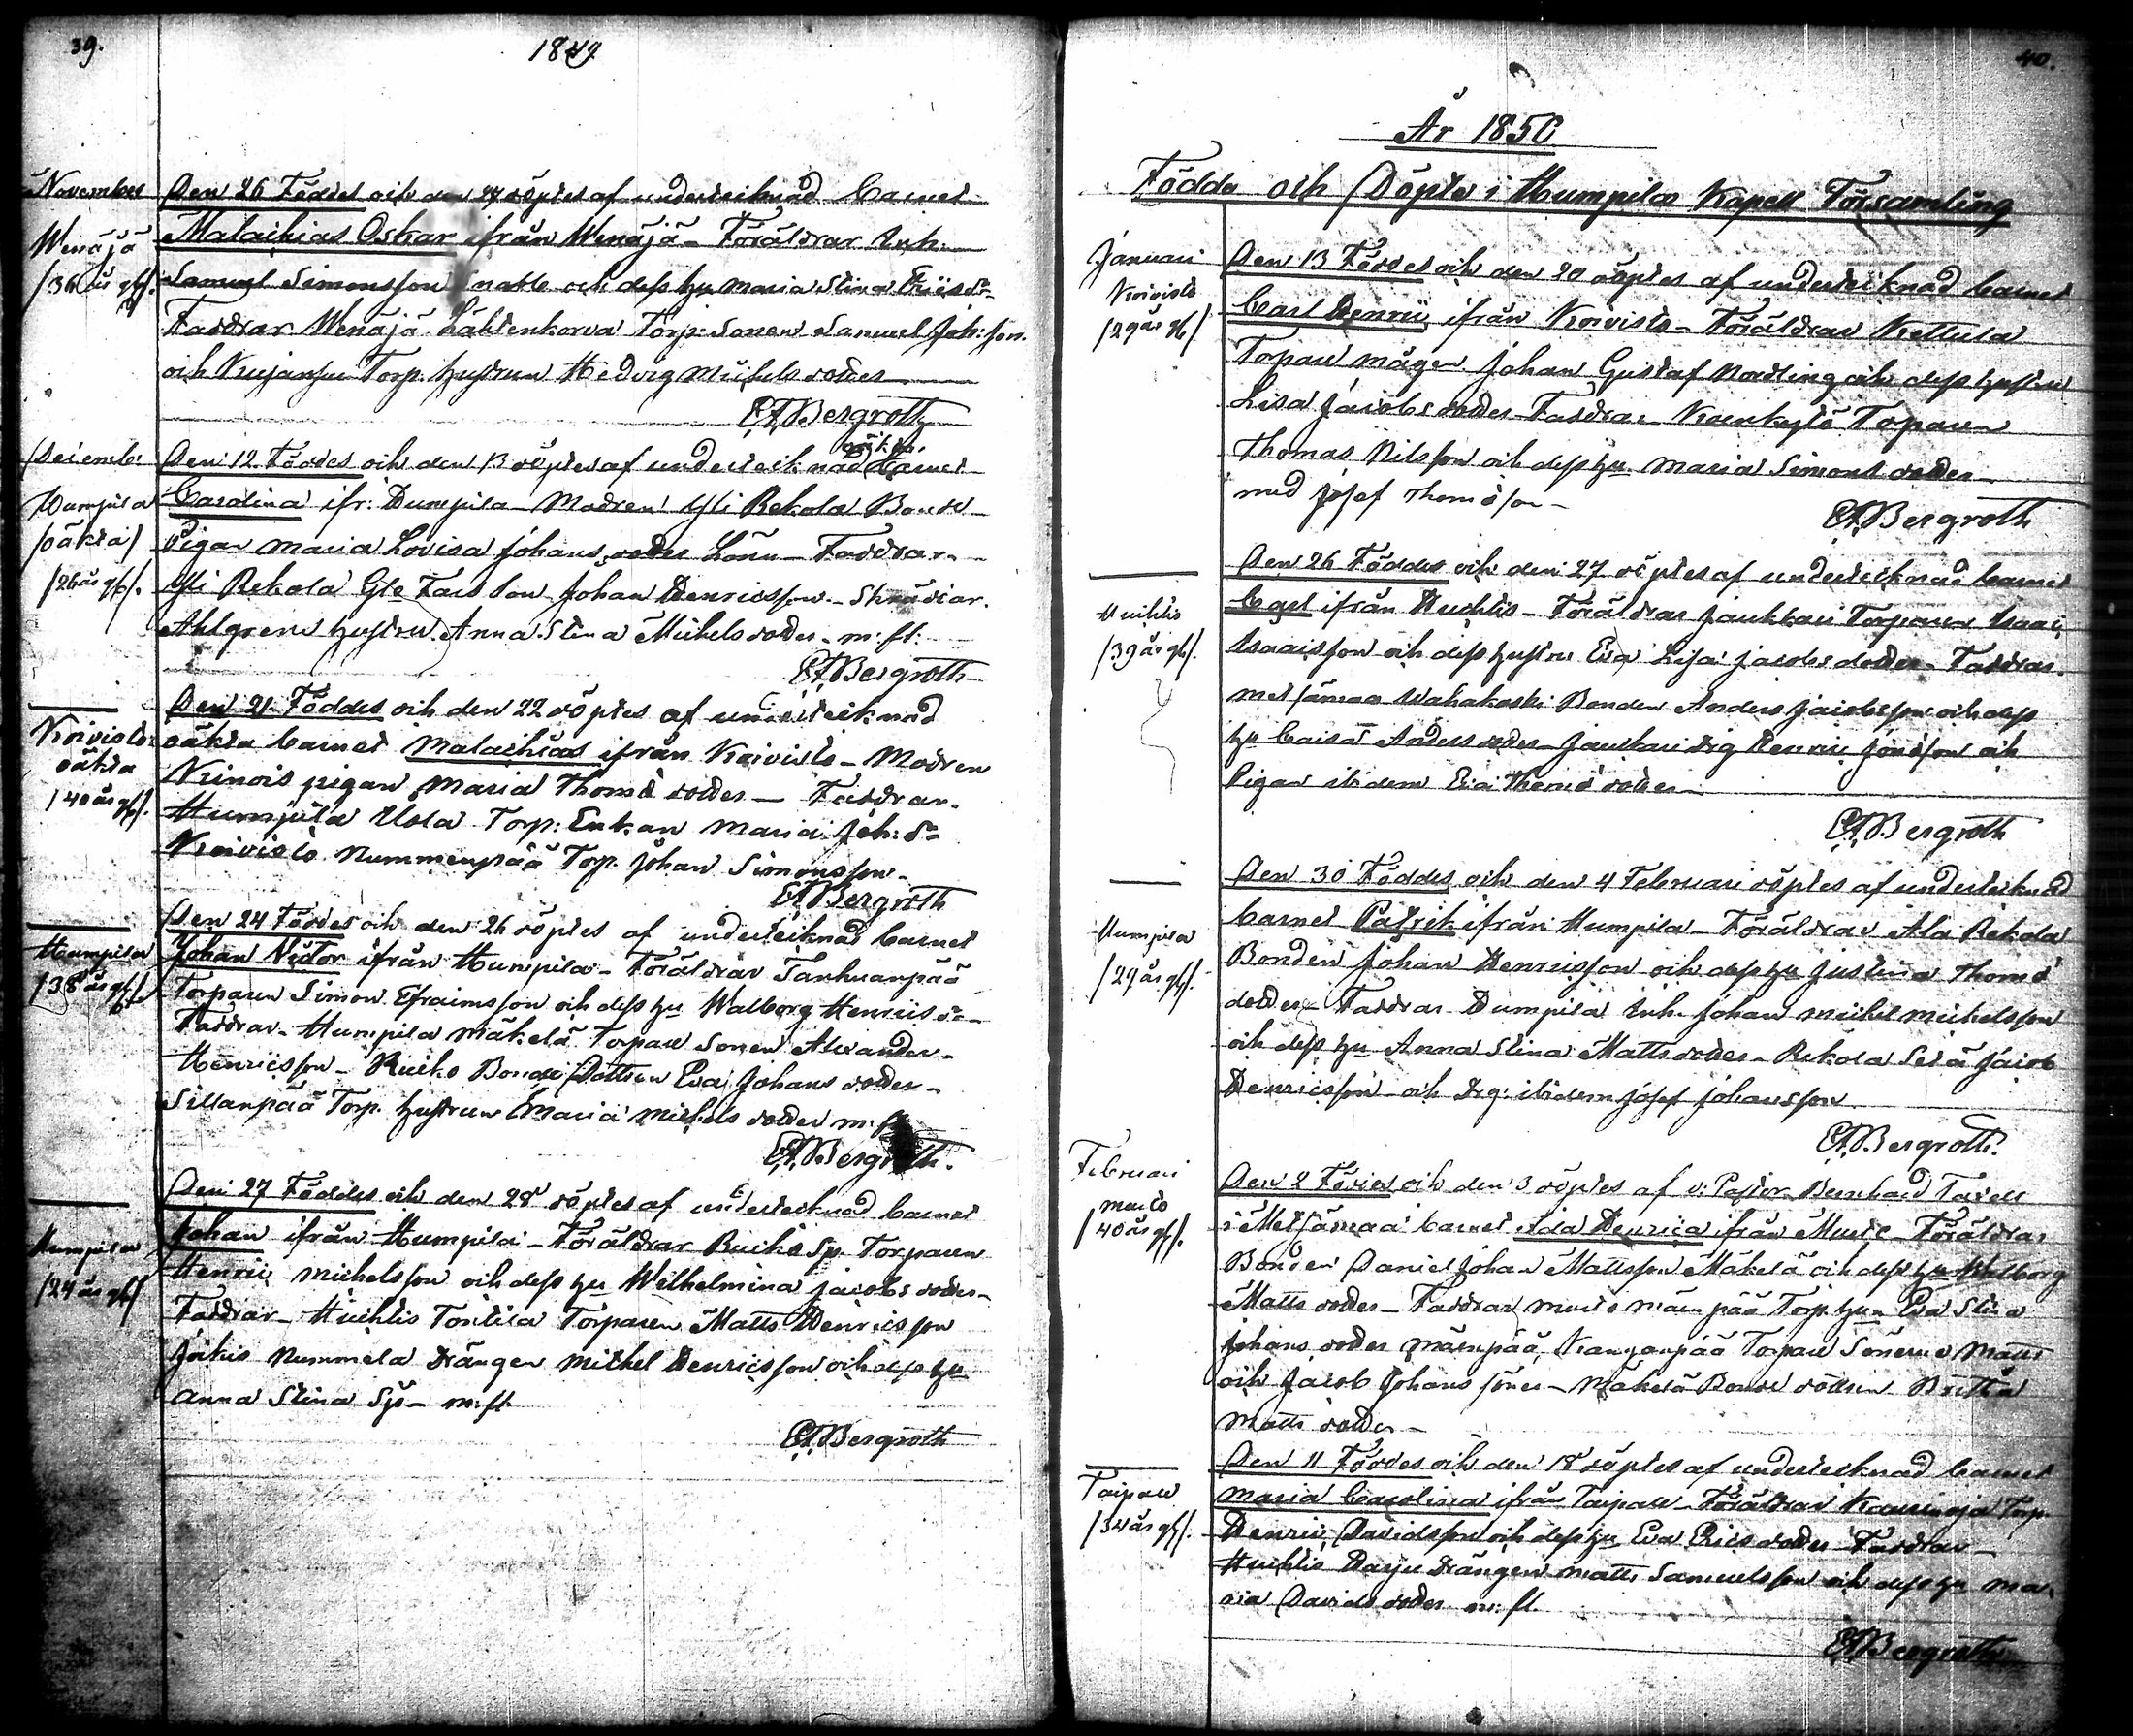 39.
1849.
November
Den 26 Föddes och den 27 döptes af undertecknad barnet
Wenäjä
Malachias Oskar ifrån Wenäjä – Föräldrar Inh.
/36 år gl/.
Samuel Simonsson och dess hu Maria Stina Ericsdr
Faddrar Wenäjä Torp. Sonen Samuel Joh:son
och Torp. hustrun Hedvig Michelsdotter
EABergroth
Decemb:
Den 12 Föddes och den 13 döptes af undertecknad oäkta barnet
Humpila
Carolina ifr. Humpila – Modren Yli Rekola Bonde
/oäkta/
Pigan Maria Lovisa Johansdotter – Faddrar
/26 år gl/.
Yli Rekola Johan Henricsson – Skräddar
Ahlgrens hustru Anna Stina Michelsdotter m: fl:
EABergroth
Den 21 Föddes och den 22 döptes af undertecknad
Koivisto
oäkta barnet Malachias ifrån Koivisto – Modren
oäkta
pigan Maria Thomædotter – Faddrar
/40 år gl/.
Humpila Uola Torp: Enkan Maria Joh:dr
Koivisto Nummenpää Torp. Johan Simonsson
EABergroth
Den 24 Föddes och den 26 döptes af undertecknad barnet
Humpila
Johan Victor ifrån Humpila – Föräldrar Tanhuanpää
/38 år gl/.
Torparen Simon Efraimsson och dess hu Walborg Henricsdr
Faddrar – Humpila Mäkelä Torpare Sonen Alexander
Henricsson – Ruiko Bonde Dottren Eva Johansdotter
Sillanpää Torp. hustrun Maria Michelsdotter m: fl
EABergroth.
Den 27 Föddes och den 28 döptes af undertecknad barnet
Humpila
Johan ifrån Humpila – Föräldrar Ruiko Sp. Torparen
/24 år gl/
Henric Michelsson och dess hu Wilhelmina Jacobsdotter
Faddrar – Huhtis Tontila Torparen Matts Henricsson
Jockis Nummela Drängen Michel Henricsson och dess hu
Anna Stina m: fl
EABergroth
40.
År 1850
Födda och Döpta i Humpila Kapell Församling
Januari
Den 13 Föddes och den 20 döptes af undertecknad barnet
Koivisto
Carl Henric ifrån Koivisto – Föräldrar Kettula
/29 år gl/
Torpare mågen Johan Gustaf Nordling och dess hustru
Lisa Jacobsdotter – Faddrar Torparen
Thomas Nilsson och dess hu Maria Simonsdotter
med Josef Thomæson –
EABergroth
Den 26 Föddes och den 27 döptes af undertecknad barnet
Huhtis
Carl ifrån Huhtis – Föräldrar Jaukkari Torparen Isaac
/39 år gl/.
Isaacsson och dess hustru Eva Lisa Jacobsdotter – Faddrar
Metsämaa Wahakoski Bonden Anders Jacobsson och dess
hu Caisa Andersdotter – Jaukkari Drg Henric Jonasson och
Pigan ibidem Eva Thomædotter
EABergroth
Den 30 Föddes och den 4 Februari döptes af undertecknad
Humpila
barnet Patrik ifrån Humpila – Föräldrar Ala Rekola
/29 år gl/.
Bonden Johan Henricsson och dess hu Justina Thomæ
dotter – Faddrar Humpila Inh. Johan Michel Michelsson
och dess hu Anna Stina Mattsdotter – Rekola Jacob
Henricsson och Drg: ibidem Josef Johansson
EABergroth.
Februari
Den 2 Föddes och den 3 döptes af v: Pastor Bernhard
Murto
i Metsämaa barnet Ada Henrica ifrån Murto – Föräldrar
/40 år gl/.
Bonden Daniel Johan Mattsson Mäkelä och dess hu Walborg
Mattsdotter – Faddrar Murto Mäenpää Torp. hun Eva Stina
Johansdotter Mäenpää, Kanganpää Torpare Sönerne Matts
och Jacob Johanssöner – Mäkelä Bonde dottren Britta
Mattsdotter –
Den 11 Föddes och den 18 döptes af undertecknad barnet
Taipale
Maria Carolina ifrån Taipale – Föräldrar Torp.
/34 år gl/.
Henric Davidsson och dess hu Eva Ericsdotter – Faddrar –
Huhtis Harju Drängen Matts Samuelsson och dess hu Ma-
ria Davidsdotter m: fl.
EABergroth